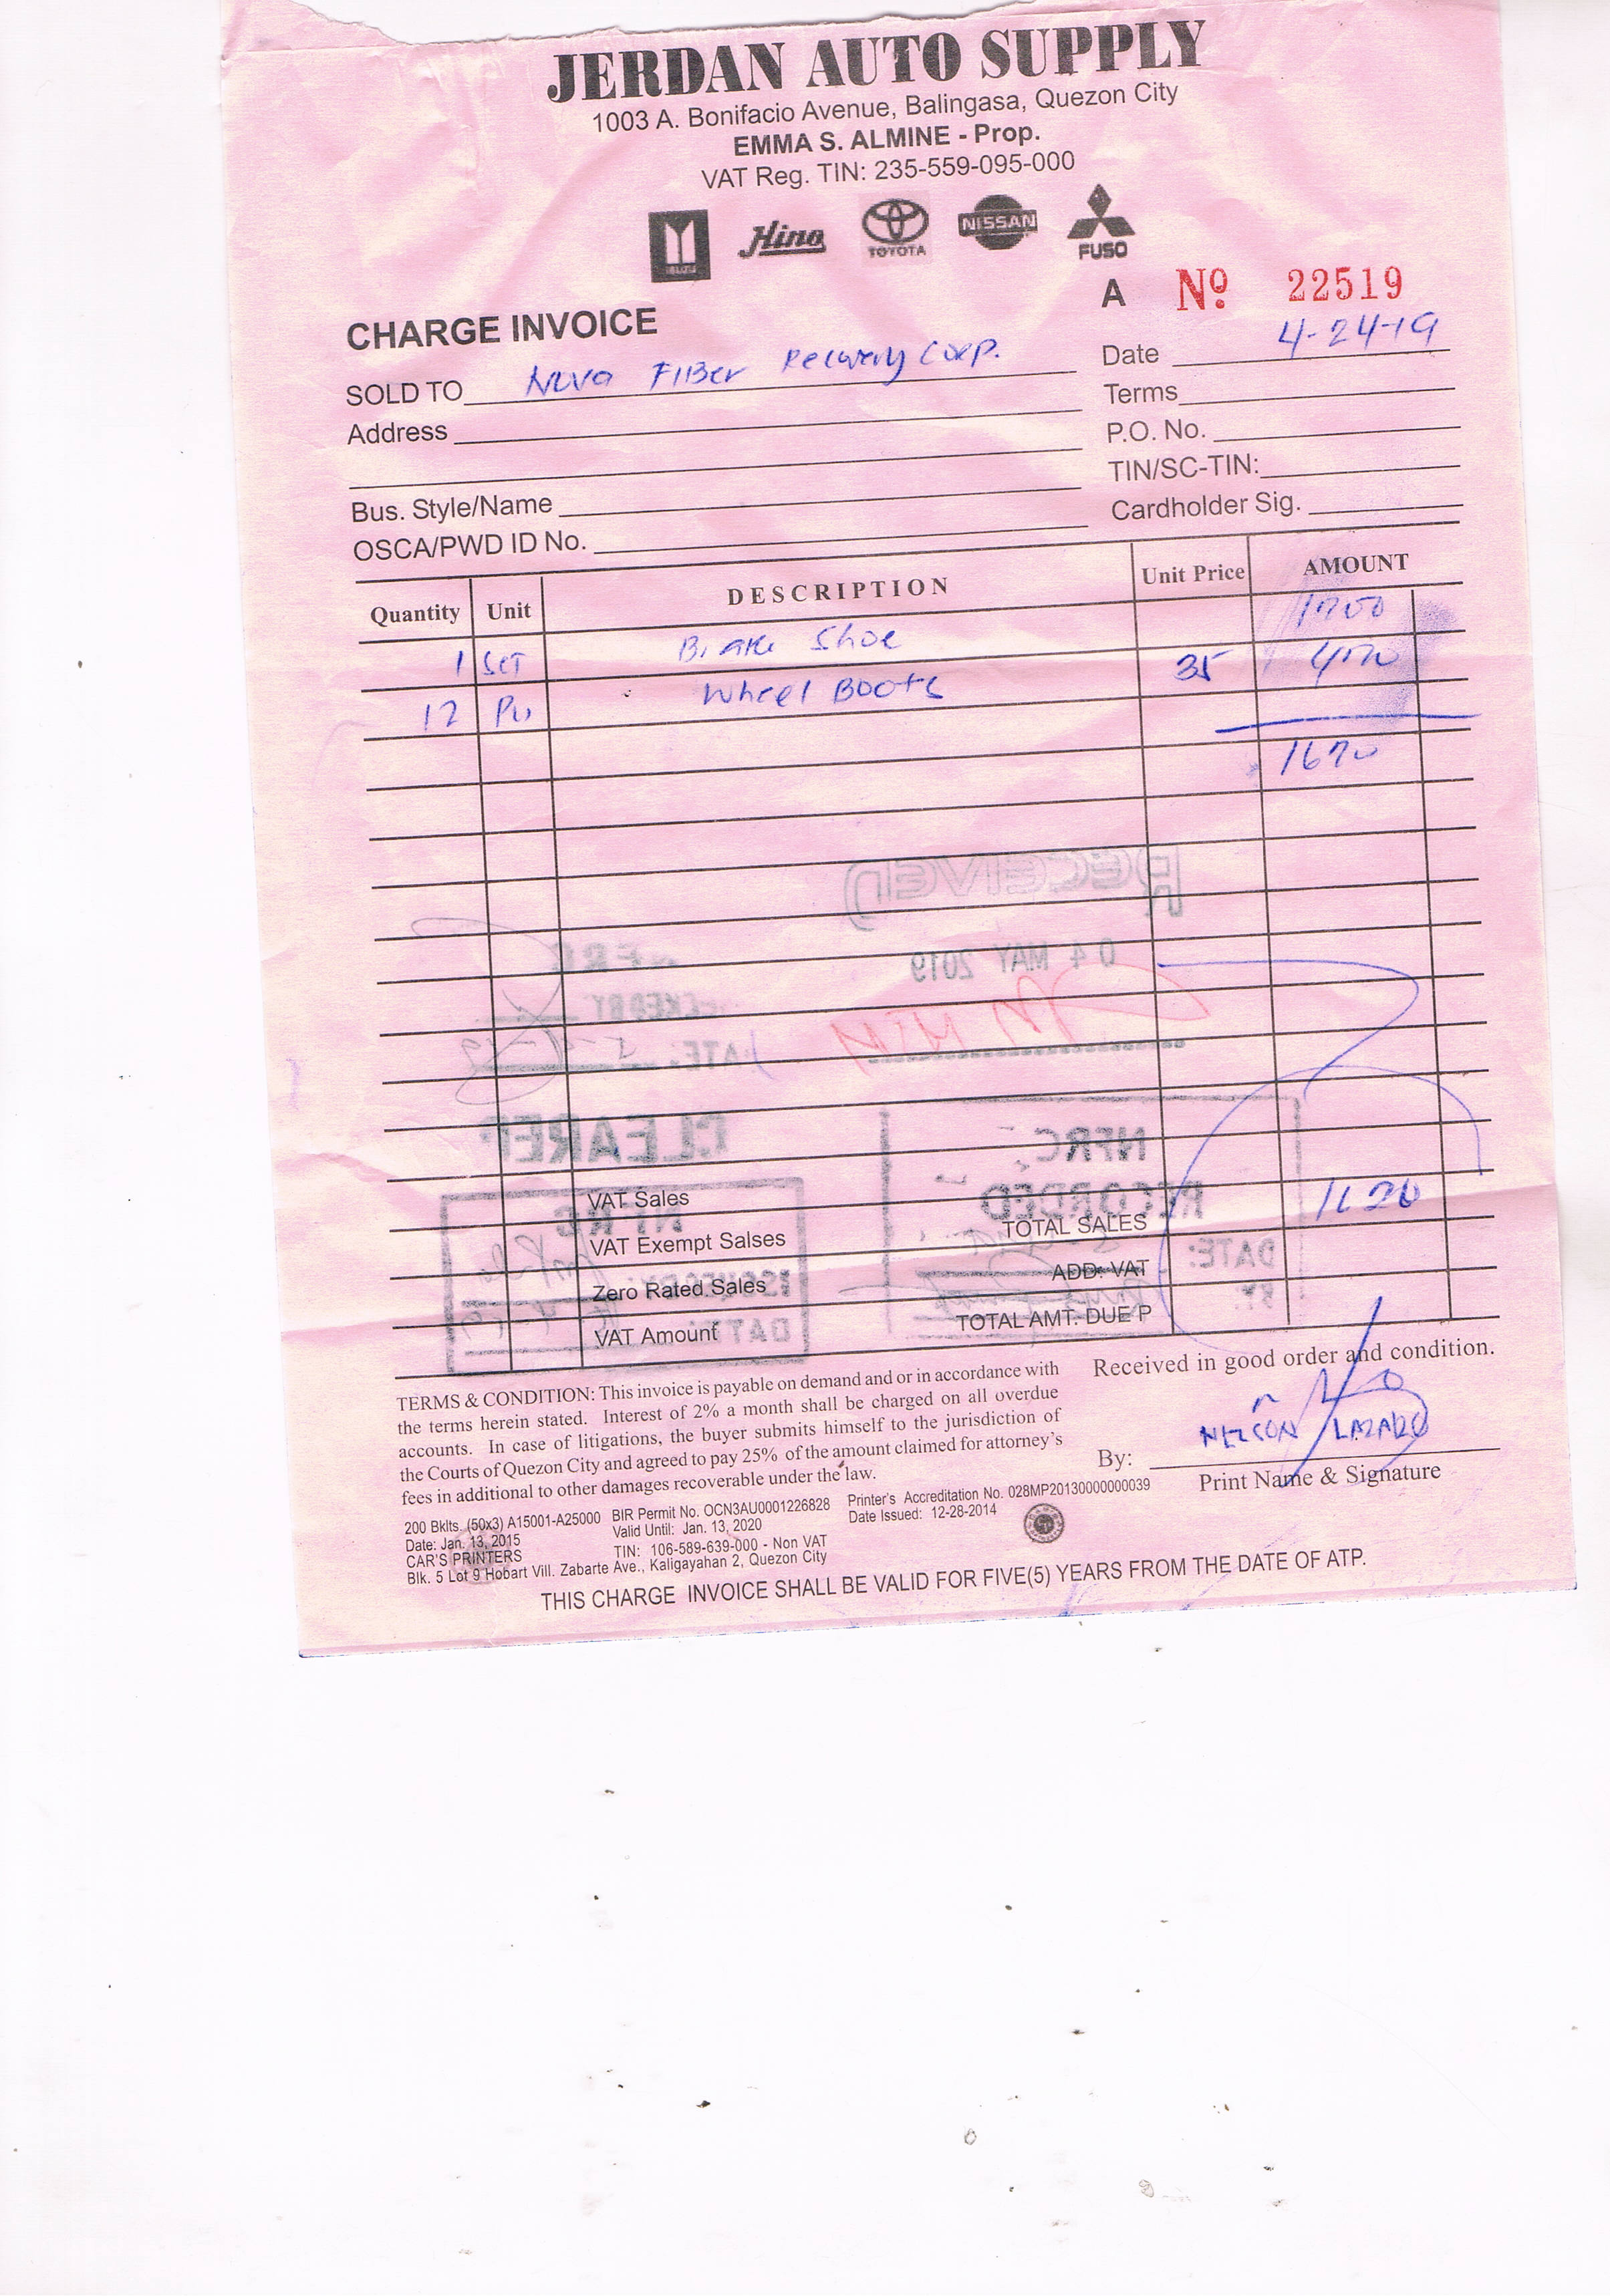 JERDAN AUTO SUPPLY
1003 A. Bonifacio Avenue, Balingasa, Quezon City
EMMA S. ALMINE - Prop.
VAT Reg. TIN: 235-559-095-000
ISUZU Hino TOYOTA NISSAN FUSO
A Nº 22519
CHARGE INVOICE
Date 4-24-19
SOLD TO Nova FIBer Recovery Corp.
Terms
Address
P.O. No.
TIN/SC-TIN:
Bus. Style/Name
Cardholder Sig.
OSCA/PWD ID No.
Quantity Unit DESCRIPTION Unit Price AMOUNT
1 Set Brake Shoe 1200
12 Wheel Boots 35 420
1620
RECEIVED
04 MAY 2019
DATE:
CLEARED
NFRC
RECORDED
DATE:
BY:
NFRC
ISSUED BY:
DATE:
VAT Sales
TOTAL SALES 1620
VAT Exempt Salses
ADD: VAT
Zero Rated Sales
TOTAL AMT. DUE P
VAT Amount
TERMS & CONDITION: This invoice is payable on demand and or in accordance with
the terms herein stated. Interest of 2% a month shall be charged on all overdue
accounts. In case of litigations, the buyer submits himself to the jurisdiction of
the Courts of Quezon City and agreed to pay 25% of the amount claimed for attorney's
fees in additional to other damages recoverable under the law.
Received in good order and condition.
NELSON LAZARO
By:
Print Name & Signature
200 Bklts. (50x3) A15001-A25000
Date: Jan. 13, 2015
CAR'S PRINTERS
Blk. 5 Lot 9 Hobart Vill. Zabarte Ave., Kaligayahan 2, Quezon City
BIR Permit No. OCN3AU0001226828
Valid Until: Jan. 13, 2020
TIN: 106-589-639-000 - Non VAT
Printer's Accreditation No. 028MP20130000000039
Date Issued: 12-28-2014
THIS CHARGE INVOICE SHALL BE VALID FOR FIVE(5) YEARS FROM THE DATE OF ATP.